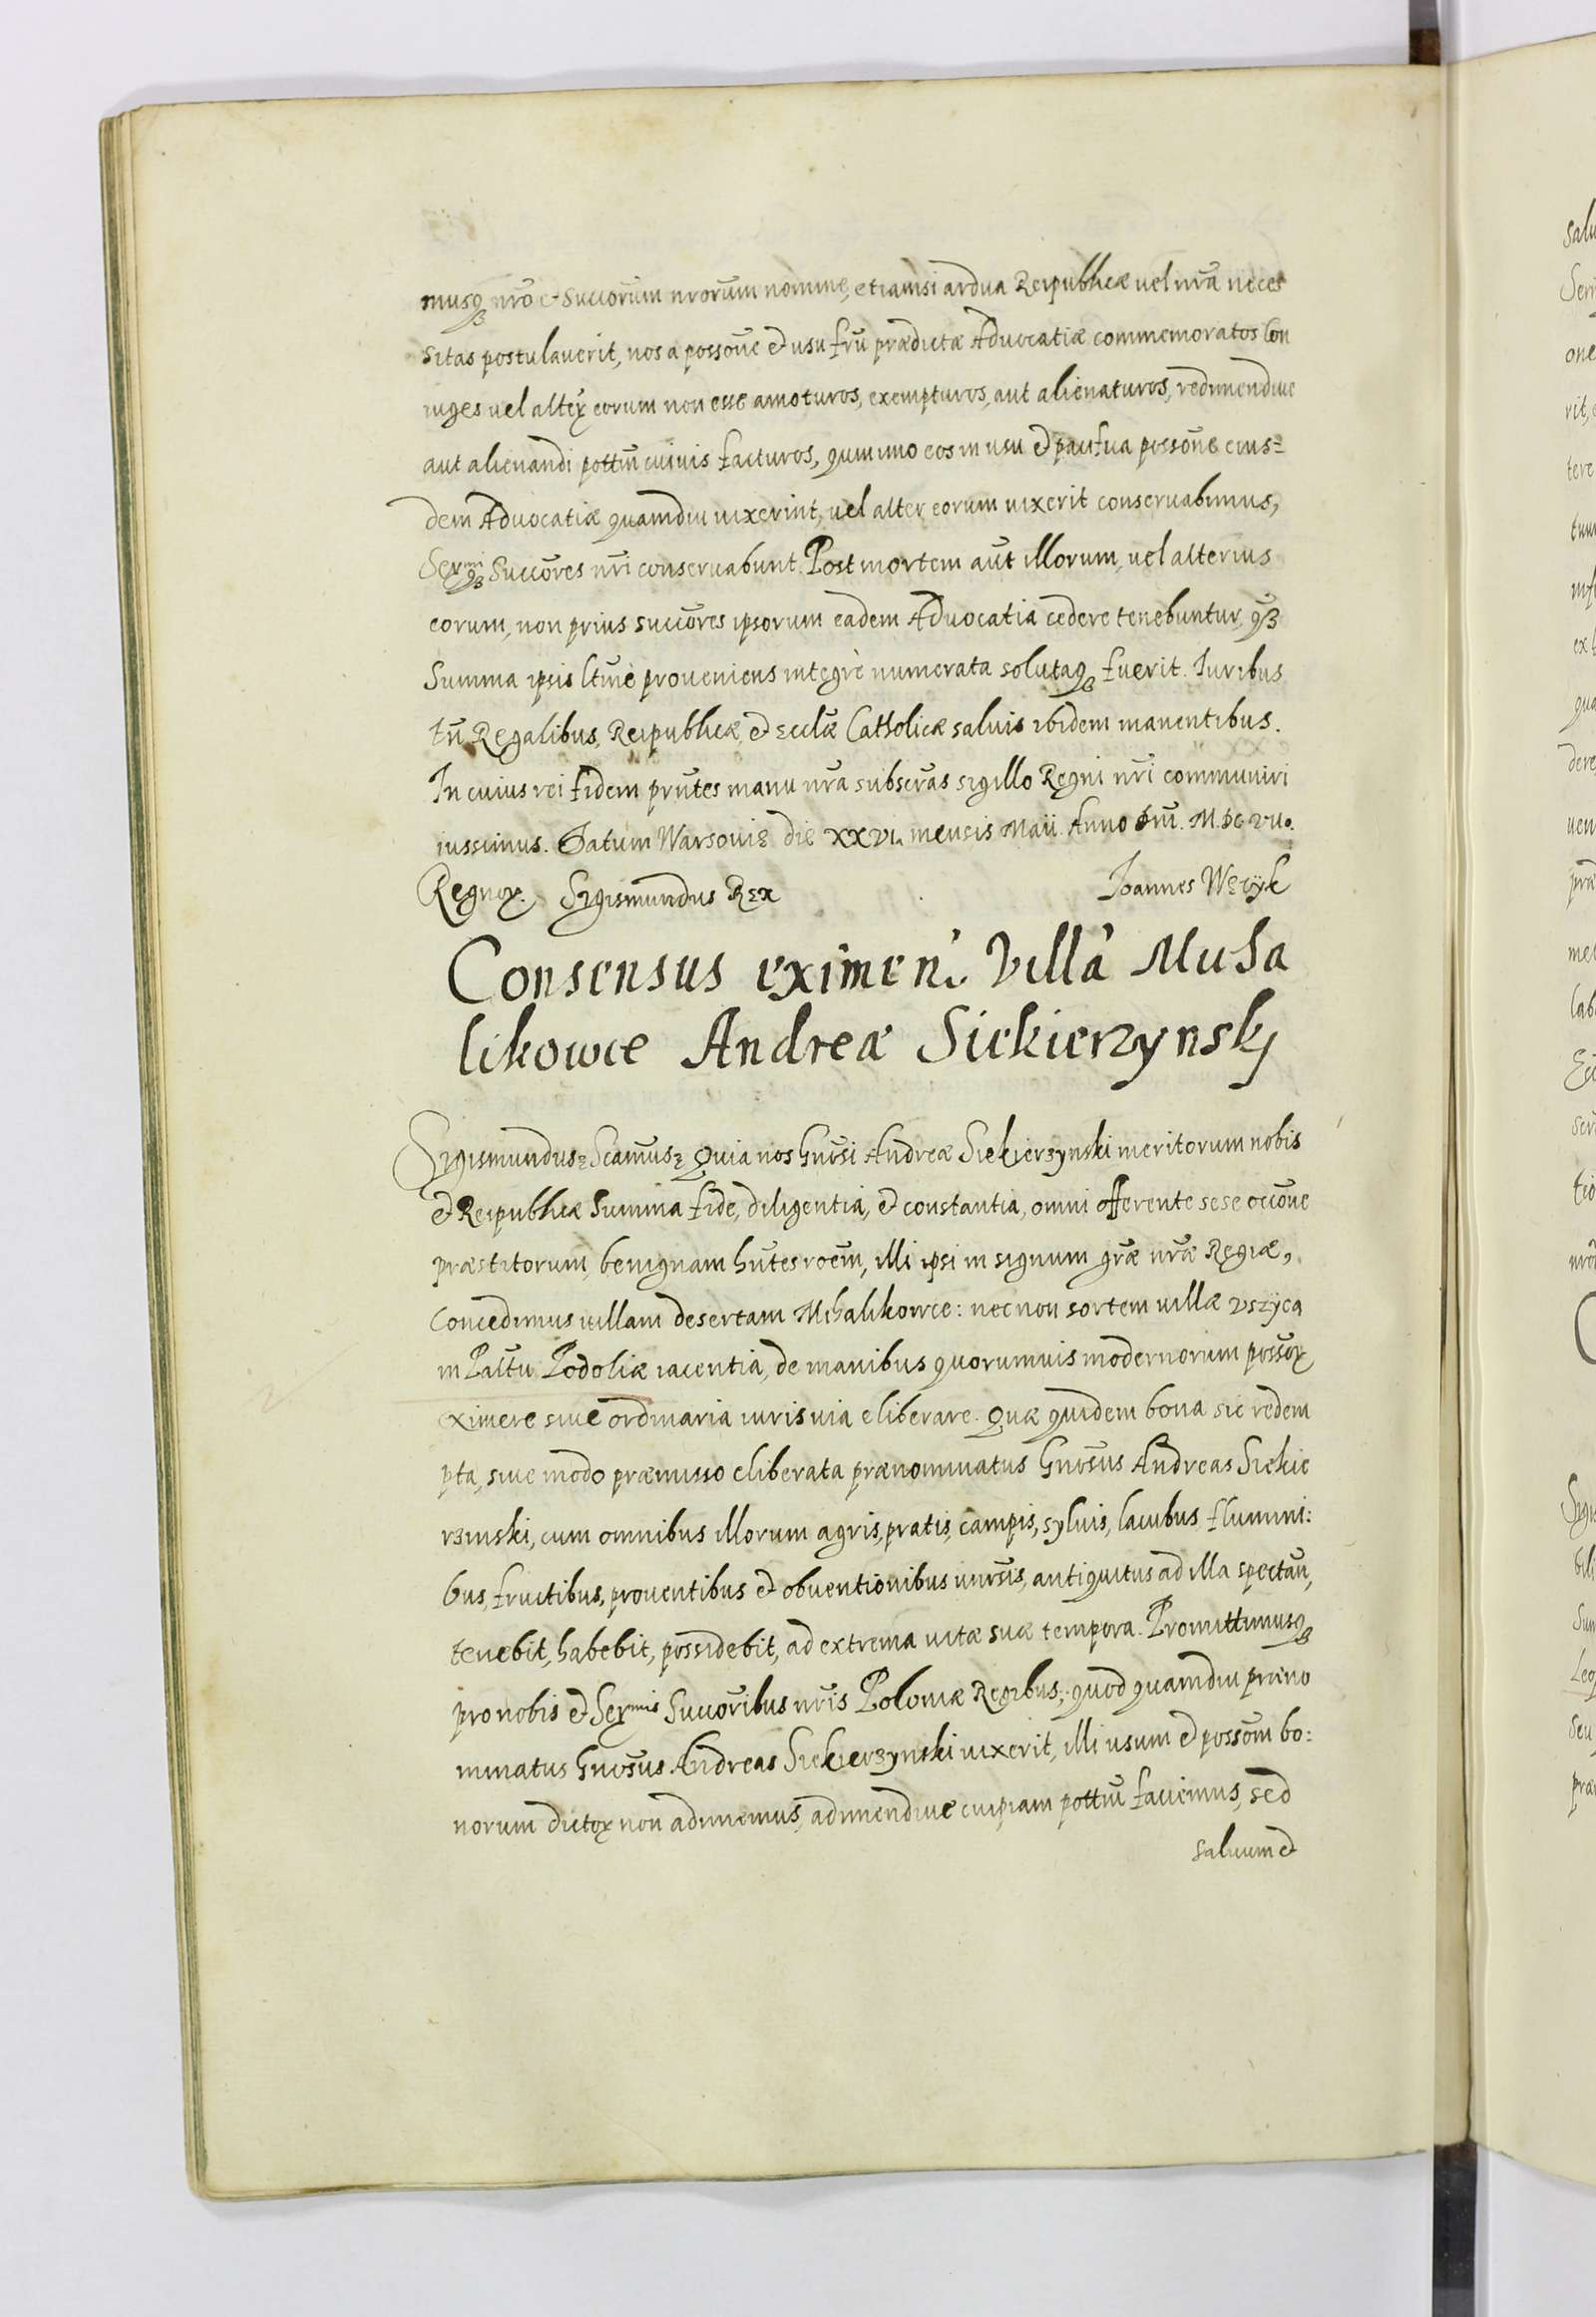 musq₃ nrō et Succōrum nrōrum nomine, etiamsi ardua Reipublicæ uel nrā neces
sitas postulauerit, nos a possōne et usu frū prædictæ Aduocatiæ commemoratos Con
iuges uel alterꝝ eorum non esse amoturos, exempturos, aut alienaturos, redimendiue
aut alienandi pottm̄ cuiuis facturos, quinimo eos in usu et pacifica possōne eius=
dem Aduocatiæ quamdiu uixerint, uel alter eorum uixerit conseruabimus,
Serᵐⁱq₃ Succōres nrī conseruabunt. Post mortem aūt illorum, uel alterius
eorum, non prius succōres ipsorum eadem Aduocatia cedere tenebuntur, q̄₃
Summa ipsis ltīmè proueniens integrè numerata solutaq₃ fuerit. Iuribus
tn̄ Regalibus, Reipublicæ, et Ecclǣ Catholicæ saluis ibidem manentibus.
In cuius rei fidem prn̄tes manu nrā subscrās sigillo Regni nrī communiri
iussimus. Datum Warsouiæ die XXVI. mensis Maii Anno Dnī. M.DC VII.
Regnoꝝ. Sigismundus Rex Ioannes Węzÿk
Consensus eximen: Villā Muha
likowce Andreæ Siekierzynskj
Sigismundus Scām̄us Quia nos Gnōsi Andreæ Siekierzynski meritorum nobis
et Reipublicæ Summa fide, diligentia, et constantia, omni offerente sese occōne
præstitorum, benignam hn̄tes roēm, illi ipsi in signum grǣ nrǣ Regiæ,
concedimus uillam desertam Mihalikowce: necnon sortem uillæ Uszÿca
in Palt̄u Podoliæ iacentia, de manibus quorumuis modernorum possōꝝ
eximere siue ordinaria iuris uia eliberare. Quæ quidem bona sic redem
pta, siue modo præmisso eliberata prænominatus Gnōsus Andreas Siekie
rzinski, cum omnibus illorum agris, pratis, campis, syluis, lacubus, flumini:
bus, fructibus, prouentibus et obuentionibus uniūsis, antiquitus ad illa spectan̄,
tenebit, habebit, possidebit, ad extrema uitæ suæ tempora. Promittimusq₃
pro nobis et Serᵐⁱˢ Succōribus nrīs Poloniæ Regibus, quod quamdiu præno
minatus Gnōsus Andreas Siekierzynski uixerit, illi usum et possōm bo:
norum dictoꝝ non adimemus, adimendiue cuipiam pottm̄ faciemus, sed
saluum et